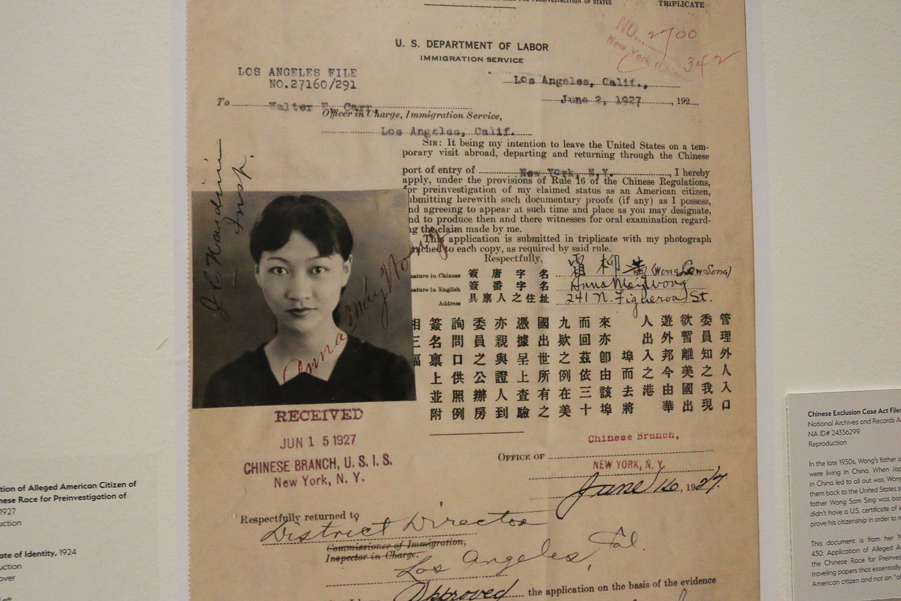 TRIPLICATE
NO. 2700
342
U. S. DEPARTMENT OF LABOR
IMMIGRATION SERVICE
LOS ANGELES FILE
NO.27160/291
Los Angeles, Calif.,
June 2, 1927, 192
To Walter E. Carr,
Officer in Charge, Immigration Service,
Los Angeles, Calif.
SIR: It being my intention to leave the United States on a tem-
porary visit abroad, departing and returning through the Chinese
port of entry of New York, N.Y., I hereby
apply, under the provisions of Rule 16 of the Chinese Regulations,
for preinvestigation of my claimed status as an American citizen,
submitting herewith such documentary proofs (if any) as I possess,
and agreeing to appear at such time and place as you may designate,
and to produce then and there witnesses for oral examination regard-
ing the claim made by me.
This application is submitted in triplicate with my photograph
attached to each copy, as required by said rule.
Respectfully,
Signature in Chinese 簽唐字名 霜柳黃
Signature in English 簽番字名 Anna May Wong
Address 具禀人之住址 241 N. Figueroa St.
Insp.
Anna May Wong
管理外人入口
委員知之我現
欲暫離美國出
遊外邦今由華
人出入之港
埠而去將
來亦卽由該十
九回茲依三埠
國欵世例在美
憑據呈上所有之
亦親與證查驗
委員之公人到
詢問口供辦房
簽名禀上照例
RECEIVED
JUN 15 1927
CHINESE BRANCH, U. S. I. S.
New York, N. Y.
Chinese Branch,
OFFICE OF NEW YORK, N. Y.
June 16, 1927.
Respectfully returned to
District Director
Commissioner of Immigration,
Inspector in Charge.
Los Angeles, Cal.
Approved the application on the basis of the evidence
tion of Alleged American Citizen of
nese Race for Preinvestigation of
1927
uction
ate of Identity, 1924
uction
over
Chinese Exclusion Case Act Files
National Archives and Records A
NA ID# 24336299
Reproduction
In the late 1930s, Wong's father
were living in China. When Jap
in China led to all out war, Wong
them back to the United States
father Wong Sam Sing was bor
didn't have a U.S. certificate of
prove his citizenship in order to
This document is from her 19
430: Application of Alleged A
the Chinese Race for Preinves
traveling papers that essentially
American citizen and not an "al